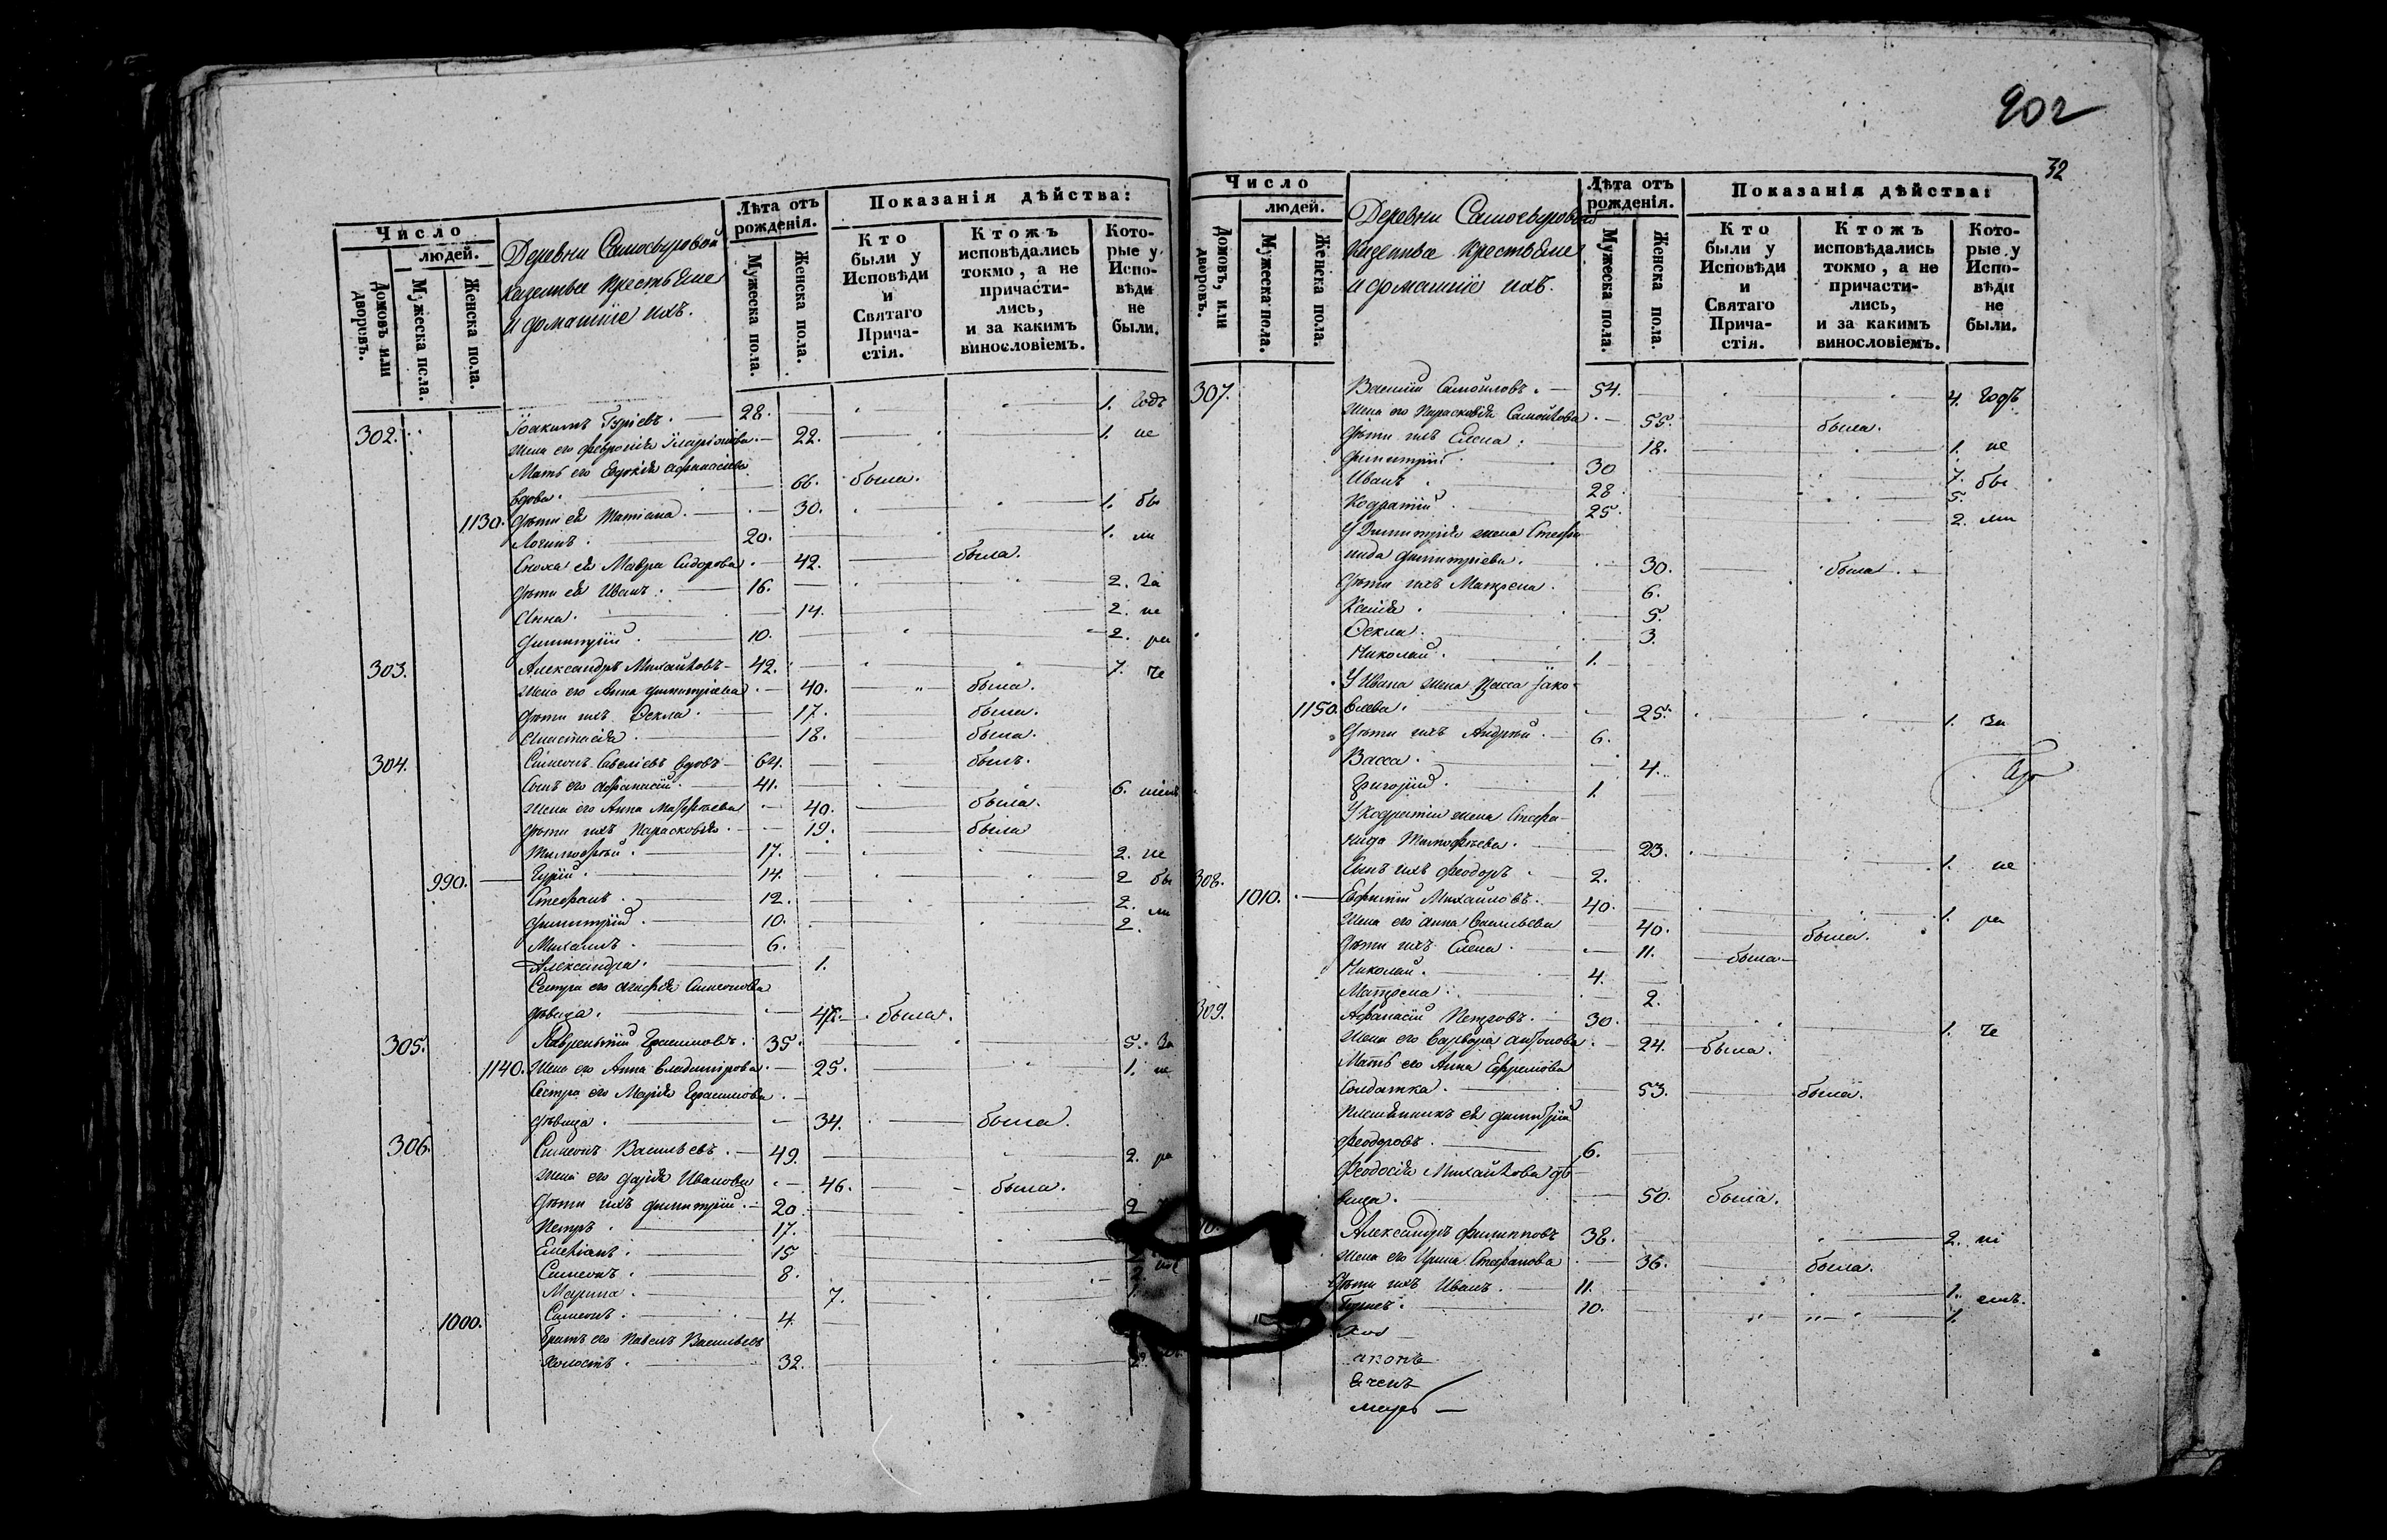 Число
людей.
Домовъ или дворовъ.
Мужеска пола.
Женска пола.
Деревни Самосѵровой
казенные крестьяне
и домашніе ихъ.
Лѣта отъ рожденія.
Мужеска пола.
Женска пола.
Показанія дѣйства:
Кто были у Исповѣди и Святаго Причастія.
Ктожъ исповѣдались токмо, а не причастились, и за какимъ винословіемъ.
Которые у Исповѣди не были.
302. Іоакимъ Гуріевъ. 28. 1. годъ
жена его Февронія Иларіонова 22. 1. не
Мать его Евдокія Афанасьева
вдова. 66. была.
1130. Дѣти ея Татіана. 30. 1. бы
Логинъ. 20. 1. ли
Сноха ея Мавра Сидорова. 42. была.
Дѣти ея Иванъ. 16. 2. За
Анна. 14. 2. не
Димитрій. 10. 2. ра
303. Александръ Михайловъ 42. 7. че
жена его Анна Димитріева 40. была.
Дѣти ихъ Ѳекла. 17. была.
Анастасія. 18. была.
304. Симеонъ Савеліевъ вдовъ 64. былъ.
Сынъ его Афанасій. 41. 6. ніемъ
жена его Анна Матфѣева 40. была.
Дѣти ихъ Парасковія. 19. была
Тимофѣй. 17. 2. не
990. Гурій. 14. 2 бы
Стефанъ. 12. 2. ли
Димитрій. 10. 2.
Михаилъ. 6.
Александра. 1.
Сестра его Агафія Симеонова
дѣвица. была.
305. Лаврентій Герасимовъ. 35. 5. За
1140. Жена его Анна Владимірова. 25. 1. не
Сестра его Марія Герасимова
дѣвица. 34. была.
306. Симеонъ Васильевъ. 49. 2. ра
жена его Дарія Иванова 46. была.
Дѣти ихъ Димитрій. 20 2
Петръ. 17.
Емеліанъ. 15
Симеонъ. 8. 2.
Марина. 7. 1.
1000. Симеонъ. 4.
Братъ его Павелъ Васильевъ
холостъ. 32. 2.
902
32
Число
людей.
Домовъ, или дворовъ.
Мужеска пола.
Женска пола.
Деревни Самосѵровой
казенные крестьяне
и домашніе ихъ.
Лѣта отъ рожденія.
Мужеска пола.
Женска пола.
Показанія дѣйства:
Кто были у Исповѣди и Святаго Причастія.
Ктожъ исповѣдались токмо, а не причастились, и за какимъ винословіемъ.
Которые у Исповѣди не были.
307. Василій Самойловъ. 54. 4. годъ
жена его Парасковія Самойлова 55. была.
Дѣти ихъ Елена. 18. 1. не
Димитрій 30 7. бы
Иванъ 28. 5.
Кодратій. 25. 2. ли
У Димитрія жена Стефа
нида Димитріева. 30. была.
Дѣти ихъ Матрона. 6.
Ксенія. 5.
Ѳекла. 3.
Николай. 1.
У Ивана жена Васса Іако-
1150. влева. 25. 1. За
Дѣти ихъ Андрей. 6.
Васса. 4.
Григорій. 1.
У Кодратія жена Стефа-
нида Тимофѣева. 23. 1. не
Сынъ ихъ Феодоръ 2.
308. 1010. Евфимій Михайловъ. 40. 1. ра
жена его Анна Васильева 40. была.
Дѣти ихъ Елена. 11. была.
Николай. 4.
Матрона. 2.
309. Афанасій Петровъ. 30. 1. че
жена его Варвара Антонова. 24. была.
Мать его Анна Ефремова
солдатка. 53. была.
племянникъ ея Димитрій
Феодоровъ. 6.
Феодосія Михайлова дѣ
вица. 50. была.
10. Александръ Филипповъ 38. 2. ні
жена его Ирина Стефанова 36. была.
Дѣти ихъ Иванъ. 11. 1. емъ.
10. 1.